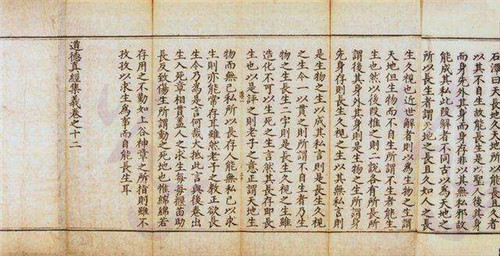 石潭曰天長地久天地之所以能長且久者
以其不自生故能長生是以聖人後其身
而身先外其身而身存非以其無私邪故
能成其私此段解者不同古人以爲天地之
所以長生者謂天地之長且久如人之長
生久視也近世解者則以爲生物之生謂
天地但生物而不自生所謂不生者能生
生也然以後段推之則二說各有所長所
謂後其身外其身則是生物之生所謂身
先身存則長生久視之生以其無私言則
是生物之生以成其私言則是長生久視
之生今一以貫之則所謂不自生者乃生
物之生長生二字則是長生久視之生雖
造化不可以生死言然老子言其長存即長
生也以是評之則老子之意正謂天地生
物而無已私所以長存人能無私已以求
生則亦能常存耳雖然老子之教正欲長
生今乃爲是言何哉大抵此言與後卷出
生入死章相貫蓋人之求生每每揠苗助
長反致傷生所謂動之死地也惟綿綿若
存用之不動如上谷神章之所指則雖不
孜孜以求生爲事而自能長生耳
道德真經集義卷之十二